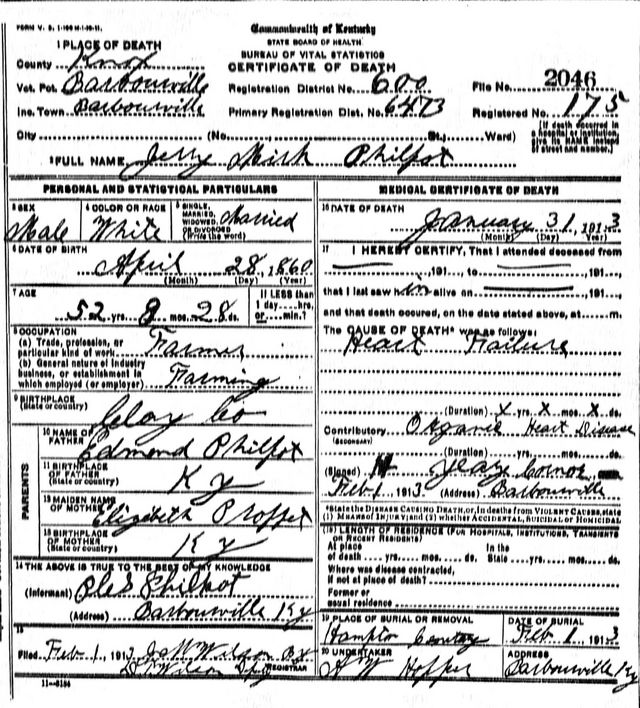 FORM V. S. 1-
Commonwealth of Kentucky
STATE BOARD OF HEALTH
BUREAU OF VITAL STATISTICS
CERTIFICATE OF DEATH
1 PLACE OF DEATH
County Knox
Vot. Pct. Barbourville
Inc. Town Barbourville
Registration District No. 600
Primary Registration Dist. No. 6473
File No. 2046
Registered No. 175
City (No. St., Ward)
(If death occurred in a hospital or institution, give its NAME instead of street and number.)
2 FULL NAME Jerry Philpot
PERSONAL AND STATISTICAL PARTICULARS
3 SEX
Male
4 COLOR OR RACE
White
5 SINGLE, MARRIED, WIDOWED, OR DIVORCED
(Write the word)
Married
6 DATE OF BIRTH
April 28, 1860
(Month) (Day) (Year)
7 AGE
52 yrs. 8 mos. 28 ds.
If LESS than 1 day...hrs. or...min.?
8 OCCUPATION
(a) Trade, profession, or particular kind of work Farmer
(b) General nature of industry business, or establishment in which employed (or employer) Farming
9 BIRTHPLACE
(State or country) Clay Co
PARENTS
10 NAME OF FATHER Edmond Philpot
11 BIRTHPLACE OF FATHER
(State or country) Ky
12 MAIDEN NAME OF MOTHER Elizabeth Proffet
13 BIRTHPLACE OF MOTHER
(State or country) Ky
14 THE ABOVE IS TRUE TO THE BEST OF MY KNOWLEDGE
(Informant) Philpot
(Address) Barbourville Ky
15
Filed Feb 1, 1913 Wilson
Wilson
REGISTRAR
11—8184
MEDICAL CERTIFICATE OF DEATH
16 DATE OF DEATH
January 31, 1913
(Month) (Day) (Year)
17 I HEREBY CERTIFY, That I attended deceased from
, 191..., to , 191...,
that I last saw him alive on , 191...,
and that death occured, on the date stated above, at m.
The CAUSE OF DEATH* was as follows:
Heart Failure
(Duration) X yrs. X mos. X ds.
Contributory Organic Heart Disease
(SECONDARY)
(Duration) yrs. mos. ds.
(Signed)
Feb 1, 1913 (Address) Barbourville
*State the DISEASE CAUSING DEATH, or, in deaths from VIOLENT CAUSES, state (1) MEANS OF INJURY; and (2) whether ACCIDENTAL, SUICIDAL or HOMICIDAL
18 LENGTH OF RESIDENCE (FOR HOSPITALS, INSTITUTIONS, TRANSIENTS OR RECENT RESIDENTS)
At place of death yrs. mos. ds. In the State yrs. mos. ds.
Where was disease contracted, if not at place of death?
Former or usual residence
19 PLACE OF BURIAL OR REMOVAL
Hampton
DATE OF BURIAL
Feb 1 1913
20 UNDERTAKER
A W Hopper
ADDRESS
Barbourville Ky